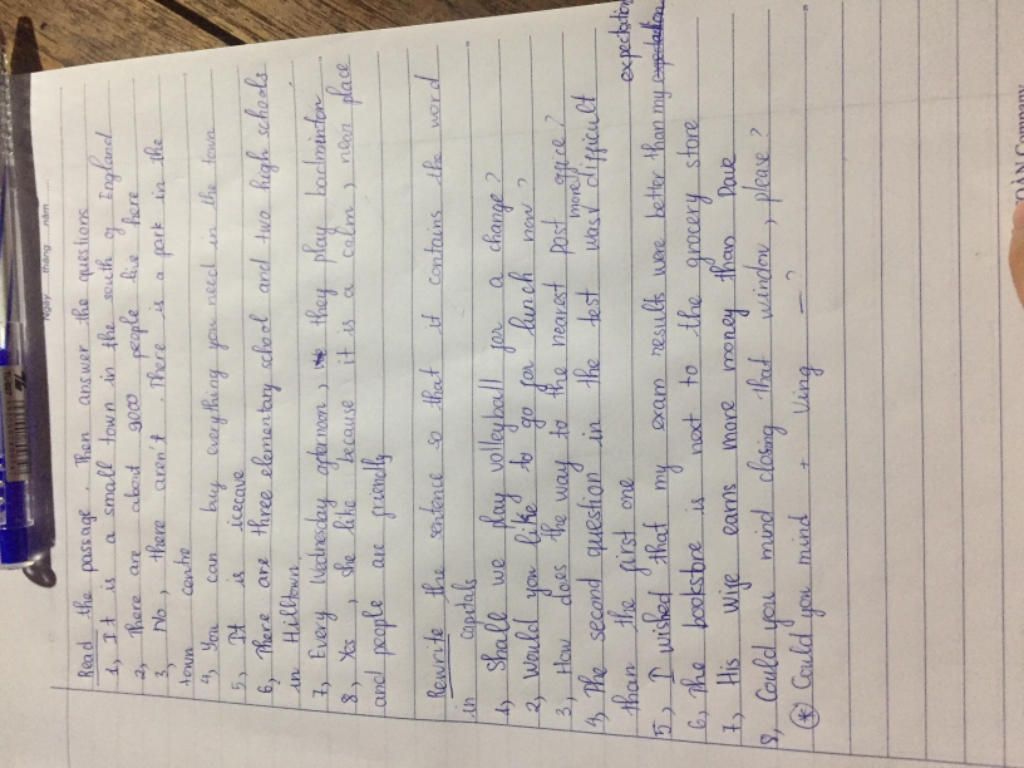 Ngày tháng năm
Read the passage. Then answer the questions
1, It is a small town in the south of England
2, There are about 9000 people live here
3, No, there aren't. There is a park in the
town centre
4, You can buy everything you need in the town
5, It is
6, There are three elementary school and two high schools
in Hilltown.
7, Every Wednesday afternoon, they play badminton
8, Yes, she like because it is a calm, near place
and people are friendly
Rewrite the sentence so that it contains the word
in capitals
1, Shall we play volleyball for a change?
2, Would you like to go for lunch now?
3, How does the way to the nearest post office?
4, The second question in the test was more difficult
than the first one
5, I wished that my exam results were better than my expectation
6, The bookstore is next to the grocery store
7, His wife earns more money than Dave
8, Could you mind closing that window, please?
* Could you mind + Ving — ?
Company